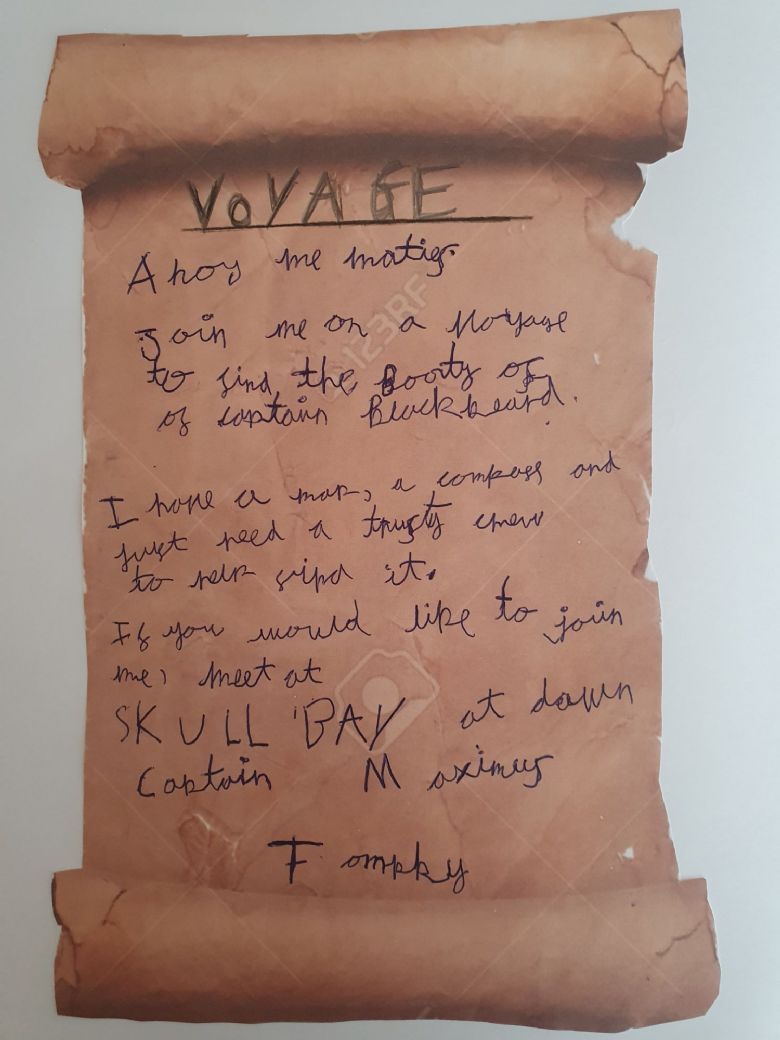 VOYAGE
Ahoy me maties.
Join me on a Voyage
to find the Booty of
of captain Blackbeard.
I have a map, a compass and
just need a trusty crew
to help find it.
If you would like to join
me, meet at
SKULL BAY at dawn
Captain Maximus
123RF